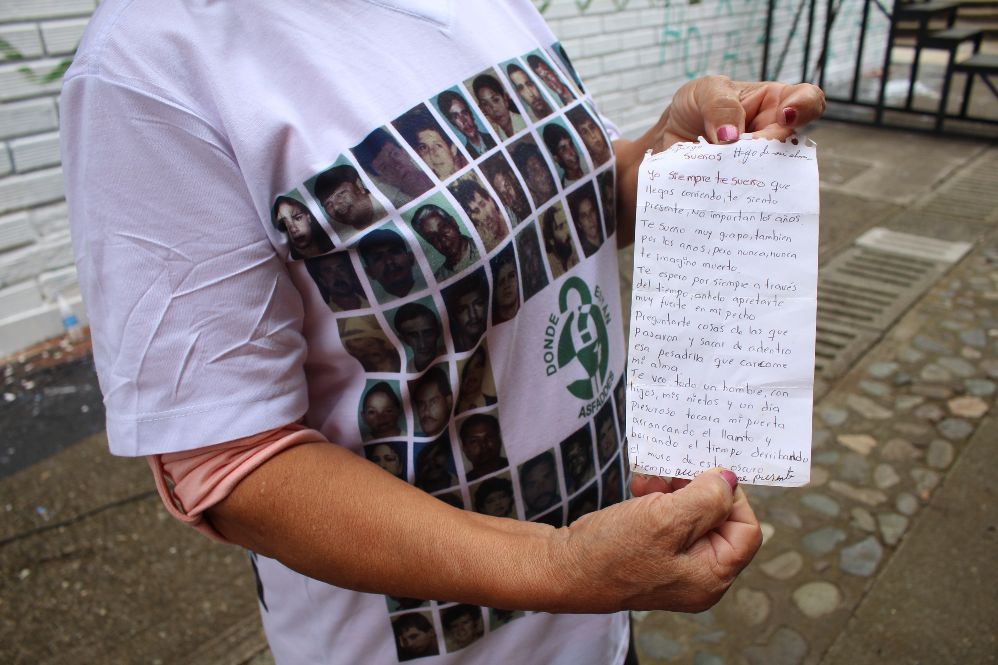 Sueños Hijo de mi alma
Yo siempre te sueño que
llegas corriendo, te siento
presente, NO importan los años.
Te sueño muy guapo, tambien
por los años, pero nunca, nunca
te imagino muerto.
Te espero por siempre a través
del tiempo, anhelo apretarte
muy fuerte en mi pecho
preguntarte cosas de las que
pasaron y sacar de adentro
esa pesadilla que carcome
mi alma.
Te veo todo un hombre, con
hijos, mis nietos y un día
presuroso tocara mi puerta
arrancando el llanto y
borrando el tiempo derribando
el muro de este oscuro
tiempo presente
DONDE ESTAN
ASFADDES